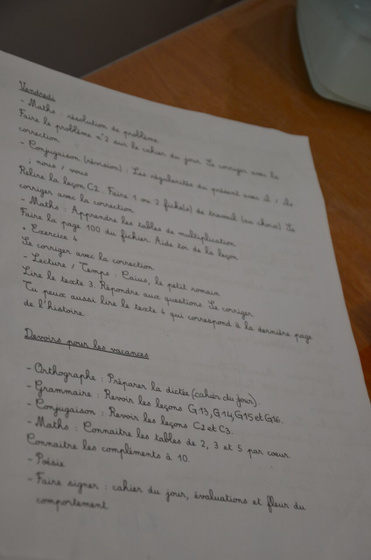 Vendredi
- Maths : résolution de problème.
Faire le problème n°2 sur le cahier du jour. Se corriger avec la
correction.
- Conjugaison (révision) : Les régularités du présent avec il ; ils
; nous / vous
Relire la leçon C2. Faire 1 ou 2 fiche(s) de travail (au choix). Se
corriger avec la correction
- Maths : Apprendre les tables de multiplication
Faire la page 100 du fichier. Aide toi de la leçon
• Exercice 4
Se corriger avec la correction.
- Lecture / Temps : Caius, le petit romain
Lire le texte 3. Répondre aux questions. Se corriger.
Tu peux aussi lire le texte 4 qui correspond à la dernière page
de l'histoire.
Devoirs pour les vacances
- Orthographe : Préparer la dictée (cahier du jour).
- Grammaire : Revoir les leçons G13, G14, G15 et G16
- Conjugaison : Revoir les leçons C2 et C3.
- Maths : Connaitre les tables de 2, 3 et 5 par cœur.
Connaitre les compléments à 10.
- Poésie
- Faire signer : cahier du jour, évaluations et fleur du
comportement